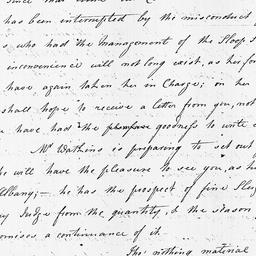 has been interrupted by the misconduct
who had the management of the Sloop
inconvenience will not long exist, as her for
have again taken her in Charge; on her
shall hope to receive a letter from you, not
have had the goodness to write
Mr Watkins is preparing to set out
he will have the pleasure to see you, as he
Albany;— he has the prospect of fine Sleig
Judge from the quantity, & the season
omises a continuance of it.
Tho' nothing material